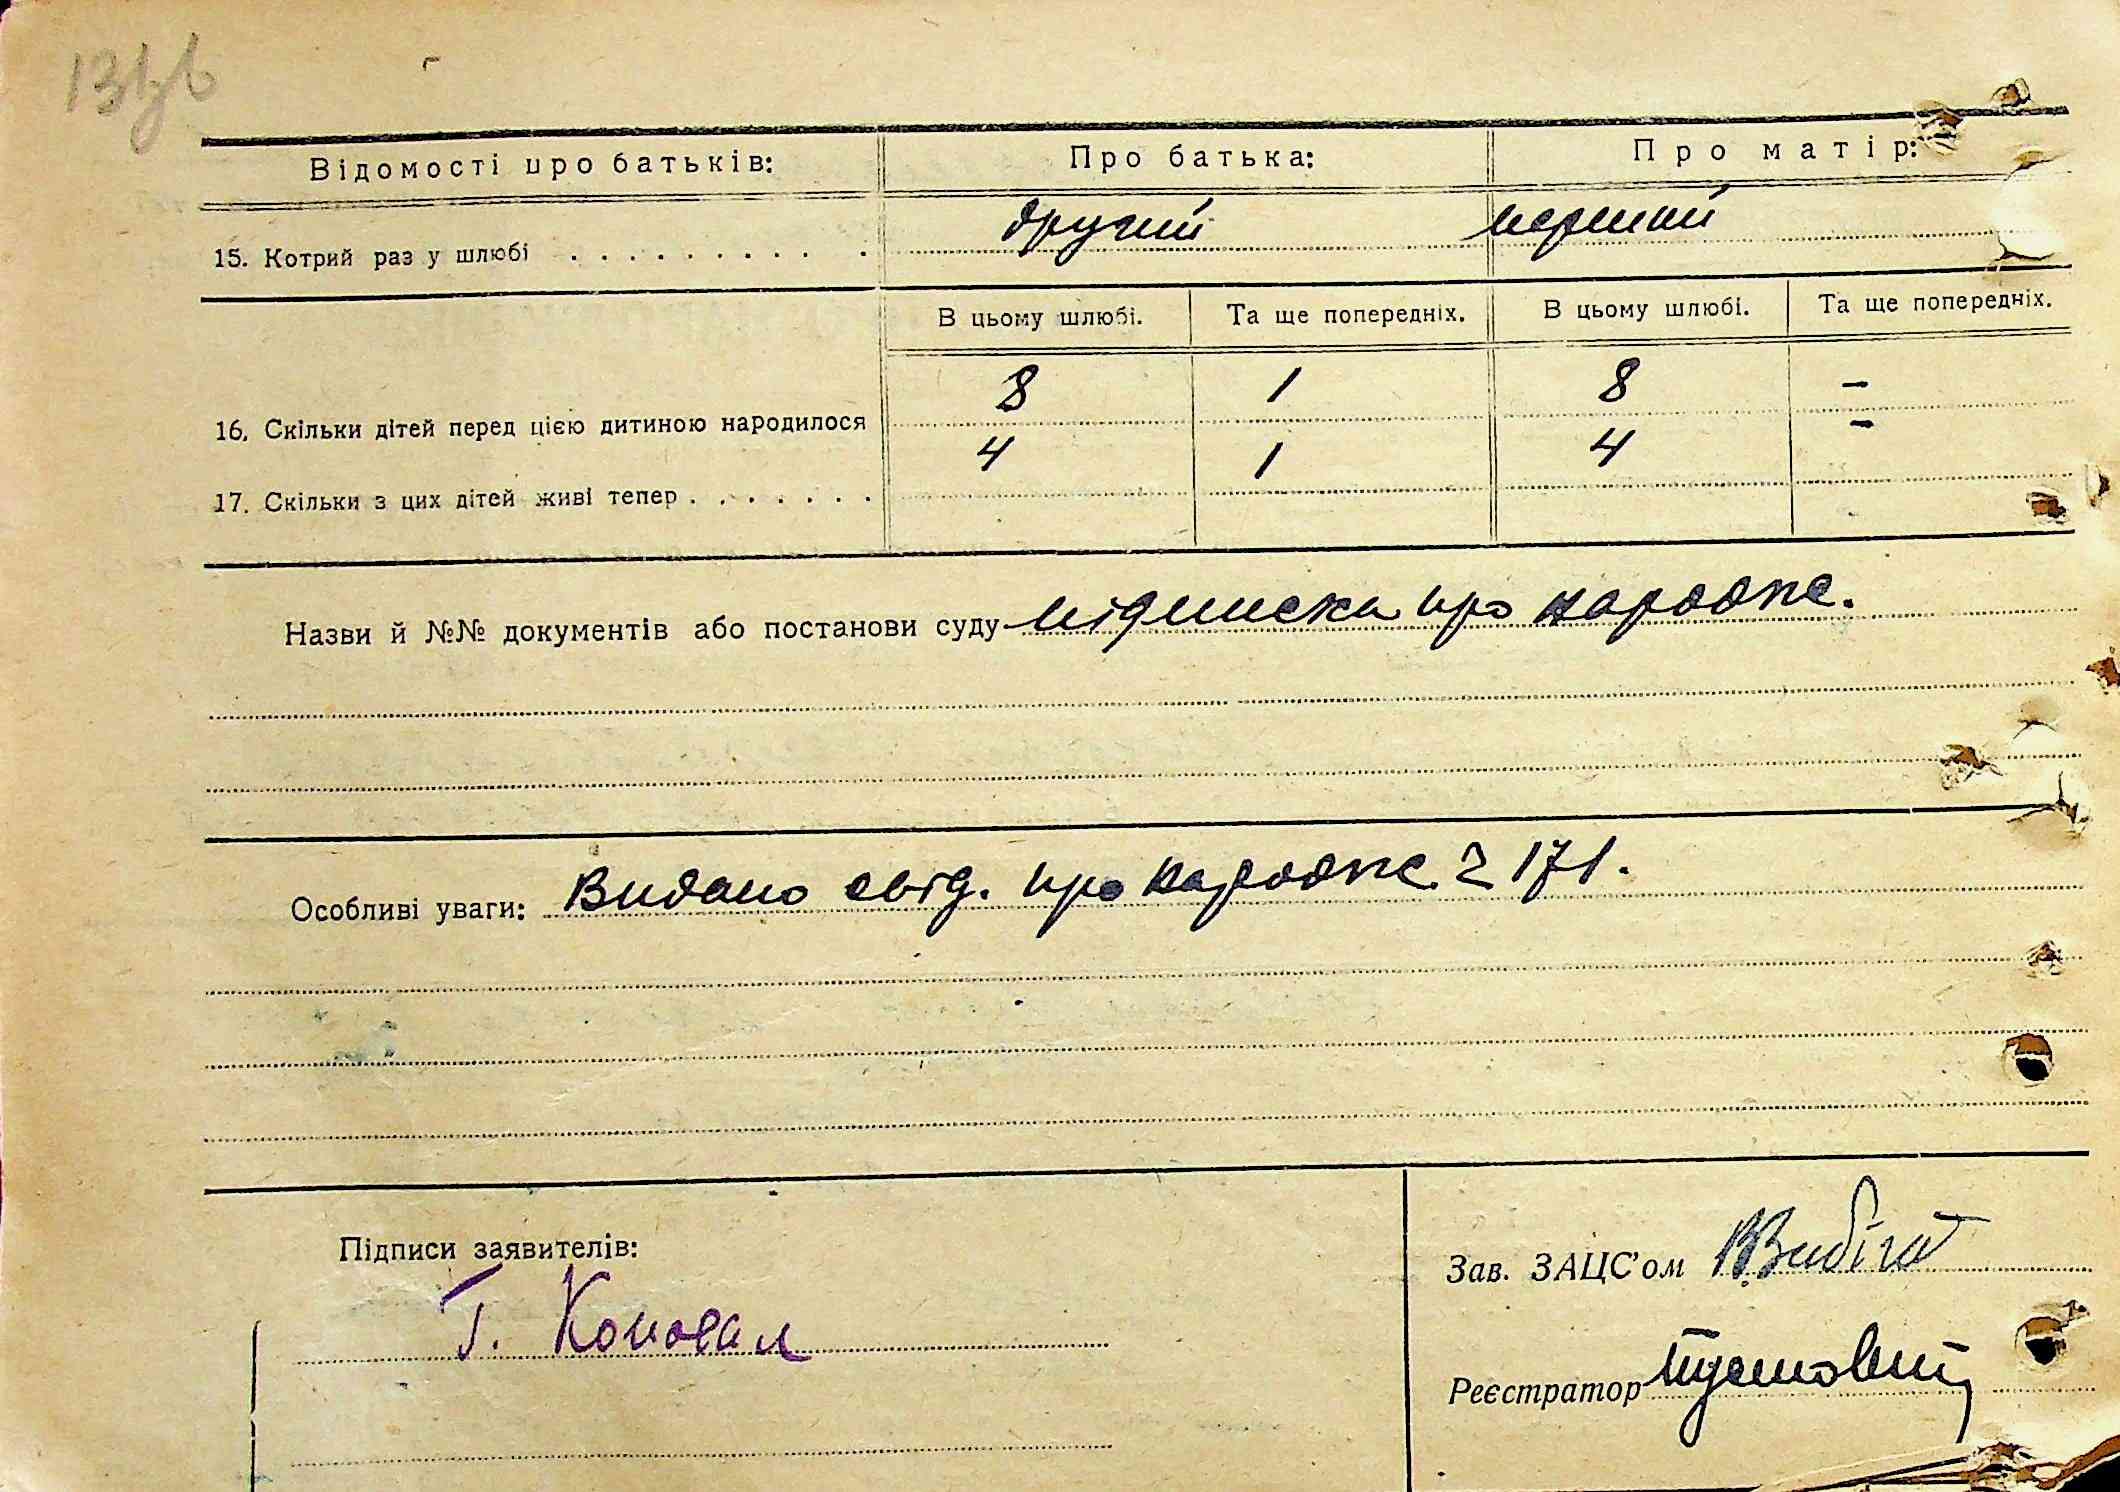 Відомості про батьків: Про батька: Про матір:
15. Котрий раз у шлюбі . . . . . . . . . . другий перший
В цьому шлюбі. Та ще попередніх. В цьому шлюбі. Та ще попередніх.
16. Скільки дітей перед цією дитиною народилося 8 1 8 –
17. Скільки з цих дітей живі тепер . . . . . . . 4 1 4 –
Назви й №№ документів або постанови суду підписка про народже.
Особливі уваги: Видано свід. про народже. 2 171.
Підписи заявителів:
Т. Коновал
Зав. ЗАЦС'ом
Реєстратор